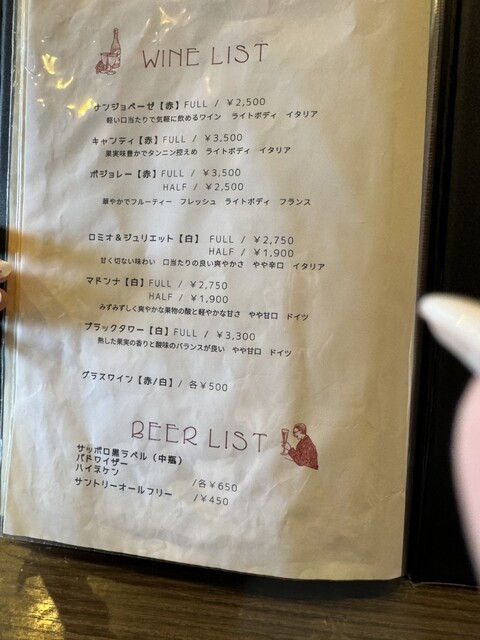 WINE LIST
サンジョベーゼ【赤】FULL / ¥2,500
軽い口当たりで気軽に飲めるワイン ライトボディ イタリア
キャンティ【赤】FULL / ¥3,500
果実味豊かでタンニン控えめ ライトボディ イタリア
ボジョレー【赤】FULL / ¥3,500
HALF / ¥2,500
華やかでフルーティー フレッシュ ライトボディ フランス
ロミオ&ジュリエット【白】 FULL / ¥2,750
HALF / ¥1,900
甘く切ない味わい 口当たりの良い爽やかさ やや辛口 イタリア
マドンナ【白】FULL / ¥2,750
HALF / ¥1,900
みずみずしく爽やかな果物の酸と軽やかな甘さ やや甘口 ドイツ
ブラックタワー【白】FULL / ¥3,300
熟した果実の香りと酸味のバランスが良い やや甘口 ドイツ
グラスワイン【赤/白】/ 各¥500
BEER LIST
サッポロ黒ラベル(中瓶)
バドワイザー
ハイネケン /各¥650
サントリーオールフリー /¥450